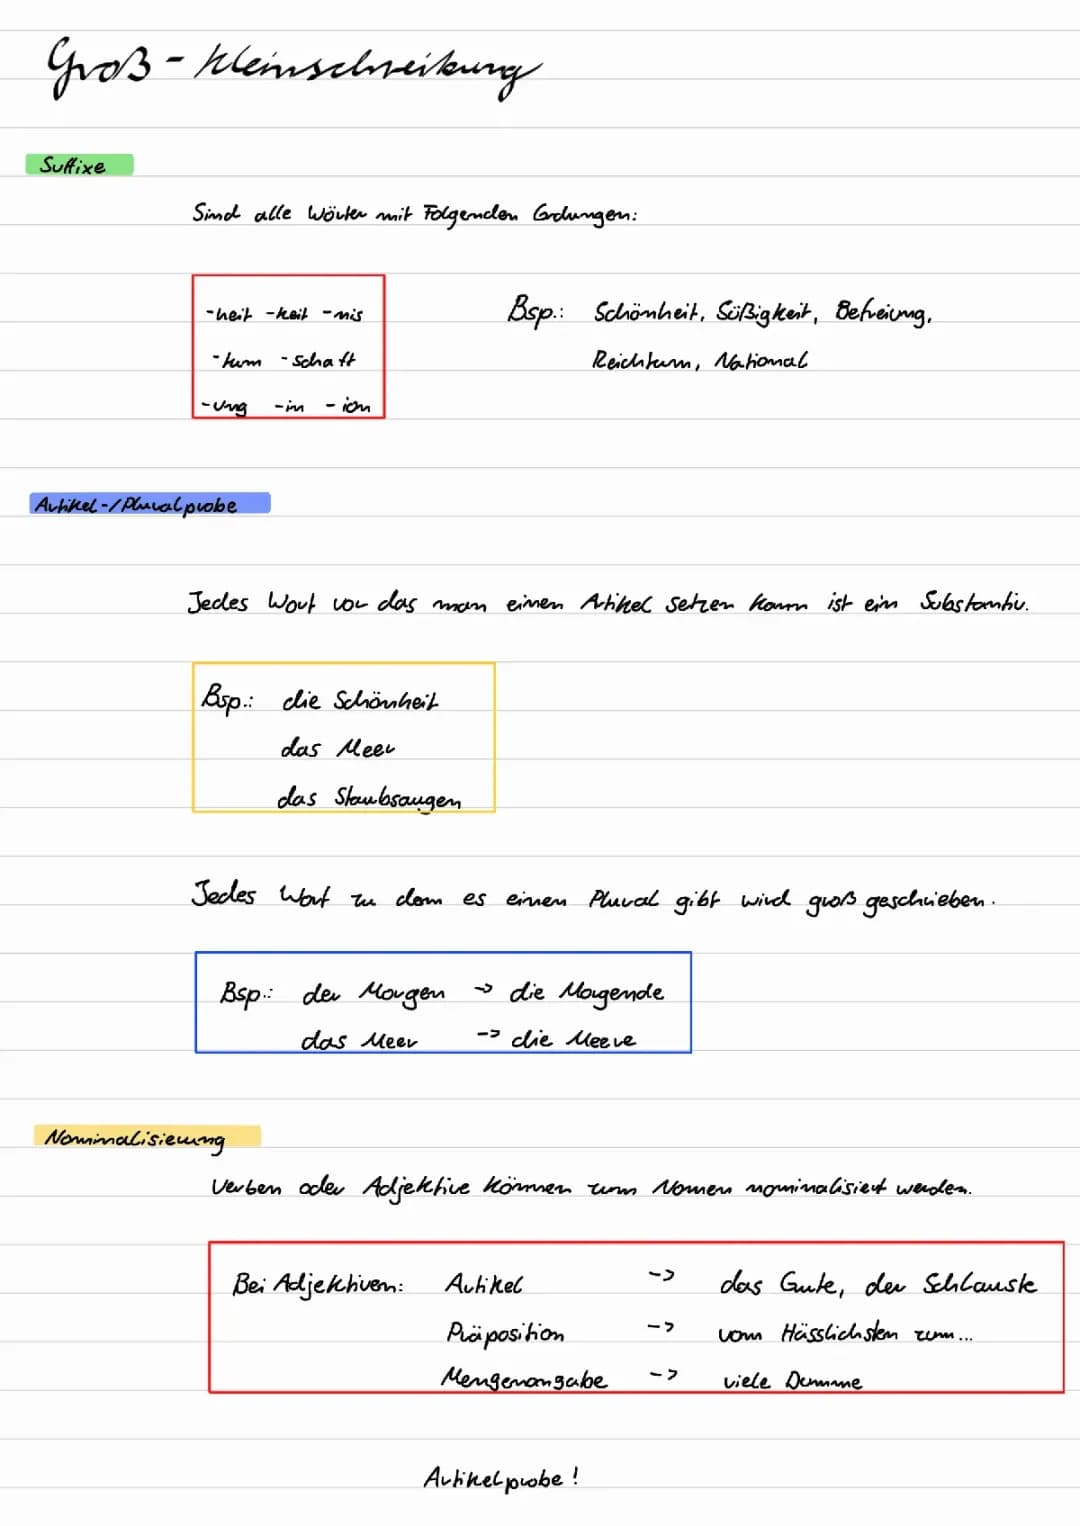 Groß-Kleinschreibung
Suffixe
Sind alle Wörter mit Folgenden Endungen:
-heit -keit -nis
-tum -schaft
-ung -in -ion
Bsp.: Schönheit, Süßigkeit, Befreiung,
Reichtum, National
Artikel-/Pluralprobe
Jedes Wort vor das man einen Artikel setzen kann ist ein Substantiv.
Bsp.: die Schönheit
das Meer
das Staubsaugen
Jedes Wort zu dem es einen Plural gibt wird groß geschrieben.
Bsp.: der Morgen -> die Morgende
das Meer -> die Meere
Nominalisierung
Verben oder Adjektive können zum Nomen nominalisiert werden.
Bei Adjektiven: Artikel -> das Gute, der Schlauste
Präposition -> vom Hässlichsten zum...
Mengenangabe -> viele Dumme
Artikelprobe!